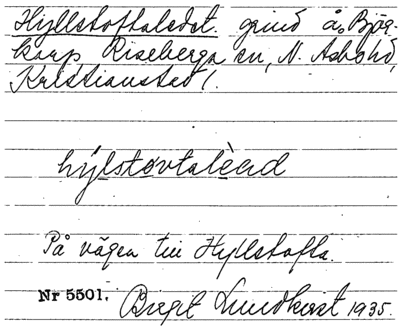 Hyllstoftaledet. grind å, Björ-
karp Riseberga sn, N. Åsbo hd,
Kristianstad l.
hýlstovtalèad
På vägen till Hyllstofta.
Nr 5501. Birgit Lundkvist 1935.